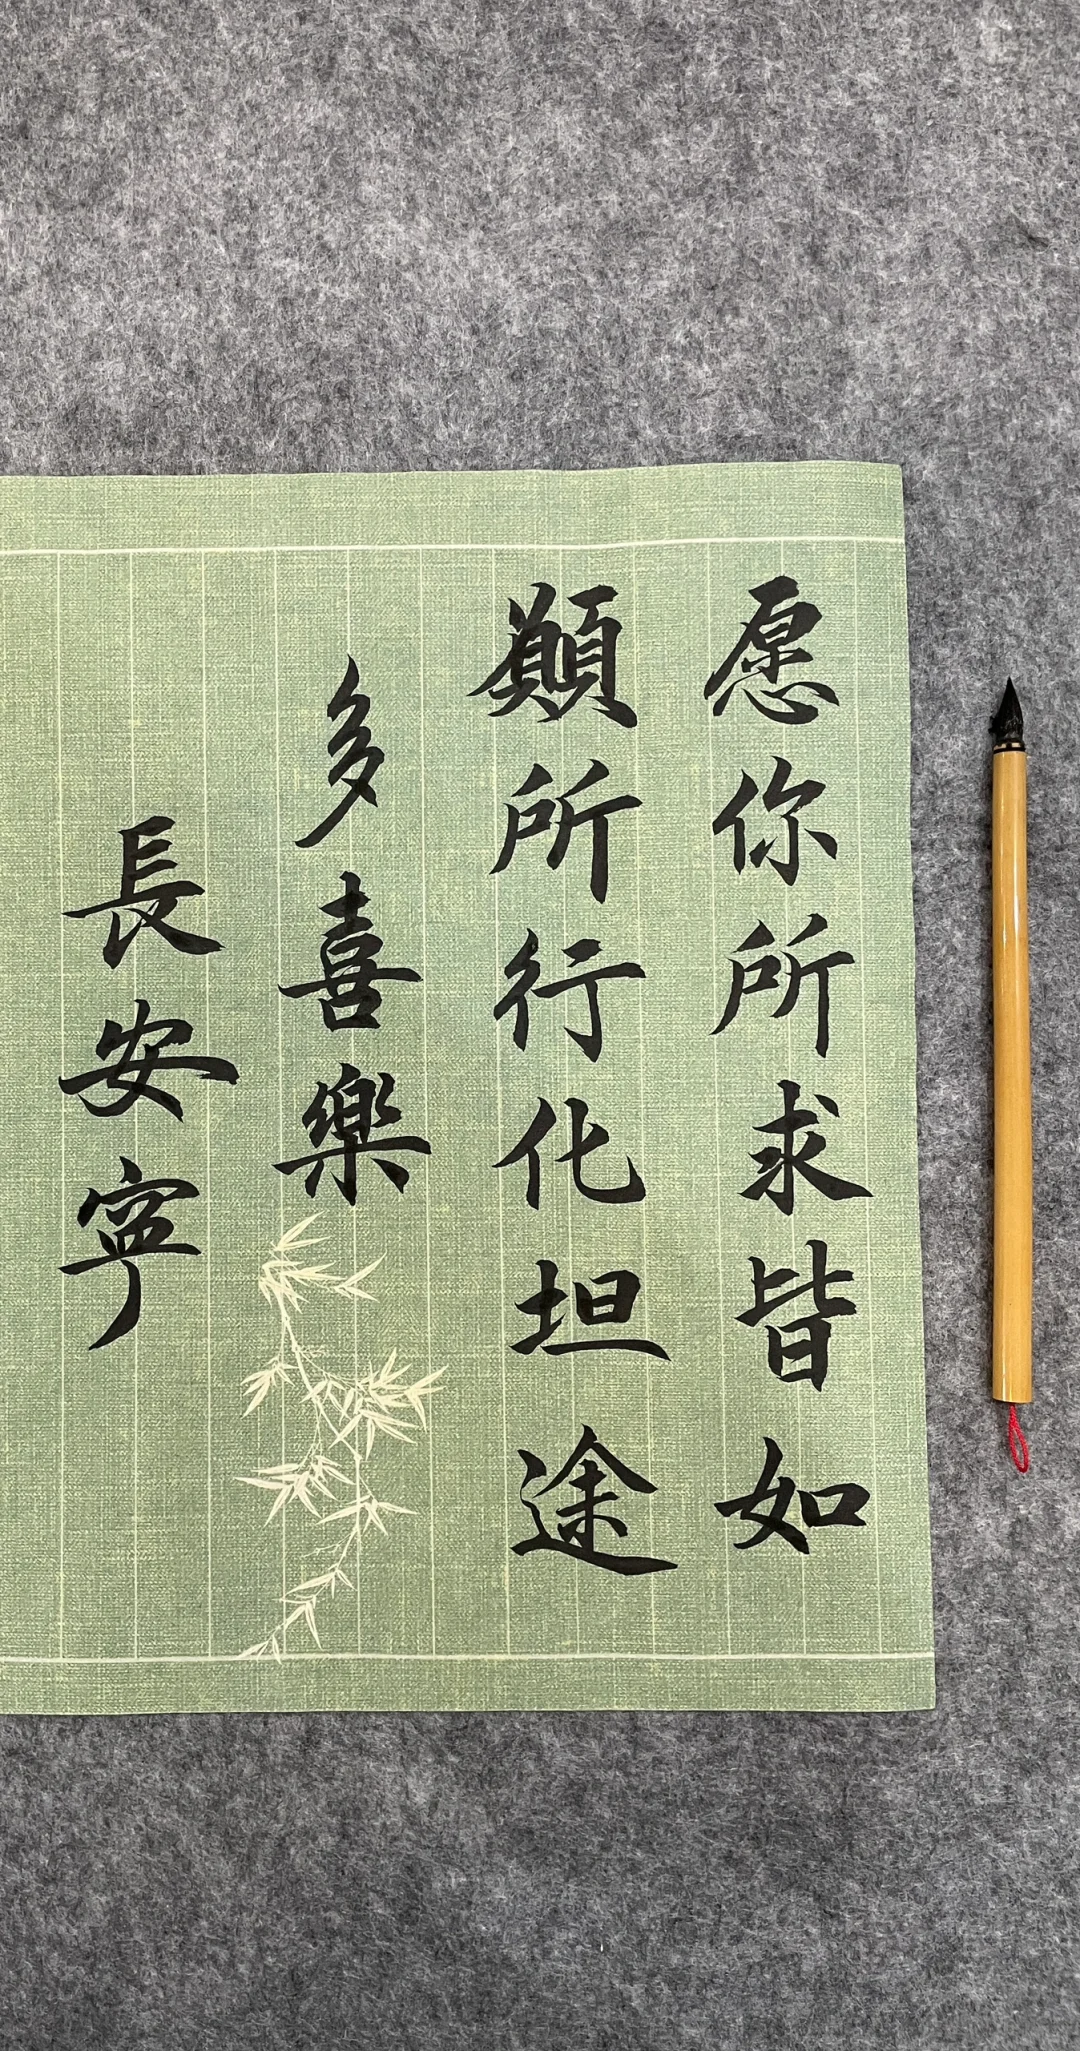 愿你所求皆如
願所行化坦途
多喜樂
長安寧